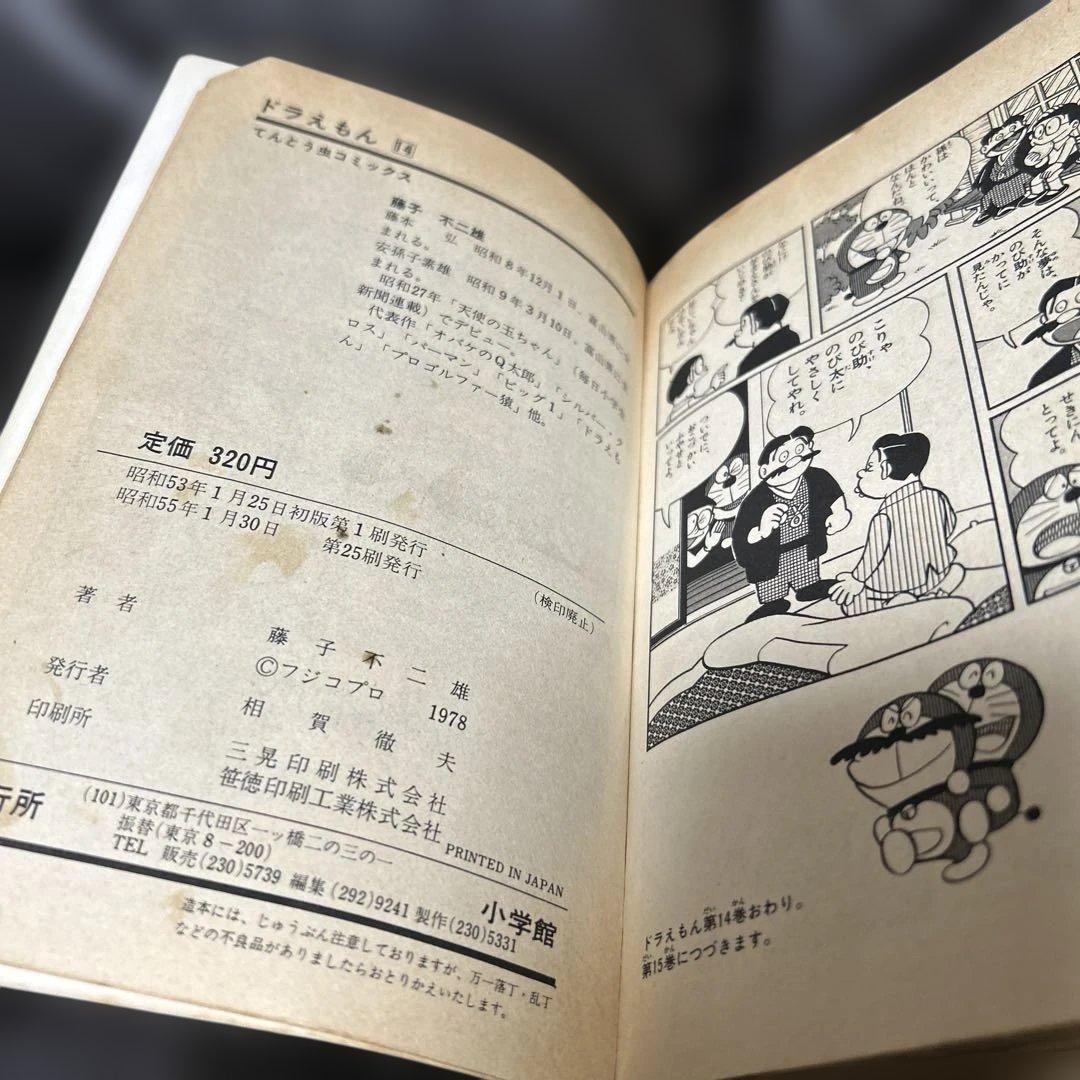 ドラえもん 14
てんとう虫コミックス
藤子 不二雄
藤本 弘 昭和8年12月1日、富山県に生
まれる。
安孫子素雄 昭和9年3月10日、富山県に生
まれる。
昭和27年「天使の玉ちゃん」(毎日小学生
新聞連載)でデビュー。
代表作「オバケのQ太郎」「シルバー・ク
ロス」「パーマン」「ビッグ1」「ドラえも
ん」「プロゴルファー猿」他。
定価 320円
昭和53年1月25日初版第1刷発行
昭和55年1月30日 第25刷発行
(検印廃止)
著者 藤子不二雄
©フジコプロ 1978
発行者 相賀徹夫
印刷所 三晃印刷株式会社
笹徳印刷工業株式会社
PRINTED IN JAPAN
行所 (101)東京都千代田区一ッ橋二の三の一
振替(東京8-200)
TEL 販売(230)5739 編集(292)9241 製作(230)5331
小学館
造本には、じゅうぶん注意しておりますが、万一落丁・乱丁
などの不良品がありましたらおとりかえいたします。
孫は
かわいいって、
ほんと
なんだね。
そんな夢は、
のび助が
かってに
見たんじゃ。
こりゃ
のび助、
のび太に
やさしく
してやれ。
ついでに、
おこづかい
ふやせと
いってよ。
せきにん
とってよ。
ドラえもん第14巻おわり。
第15巻につづきます。